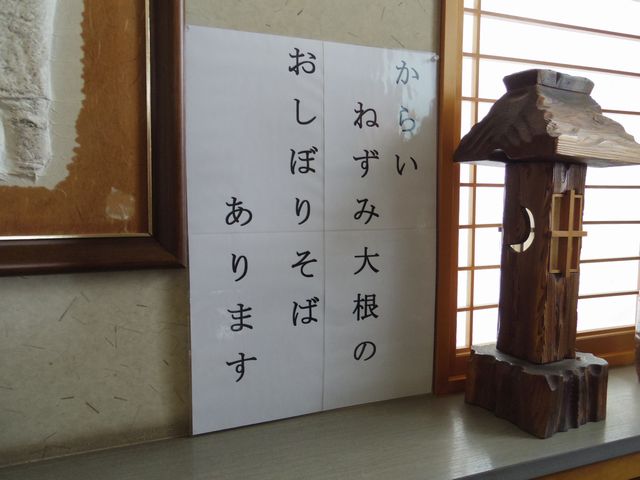 からい
ねずみ大根の
おしぼりそば
あります